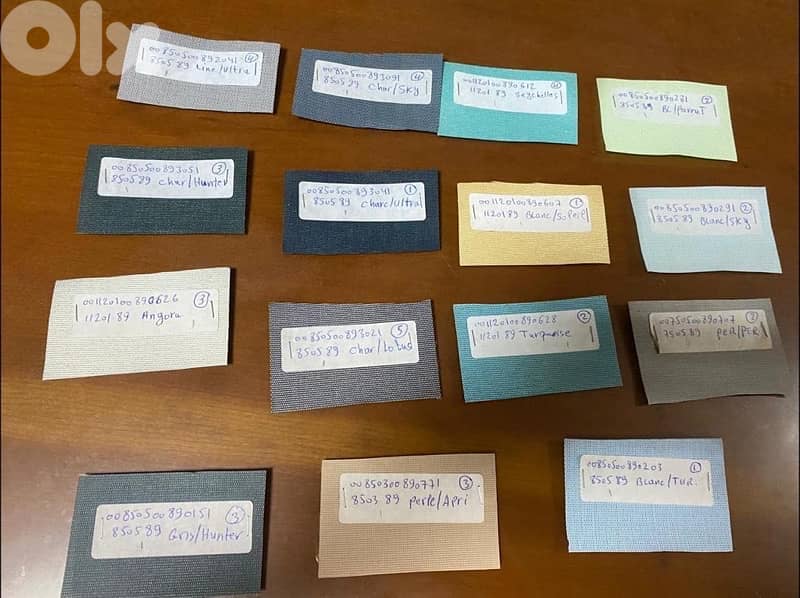 olx
00850500892041 4
8505 89 Line/Ultra
00850500893091 4
8505 89 Char/Sky
001120100890612 4
11201 89 Seychelles
00850500890281 2
8505 89 BL/Parrot
00850500893051 3
8505 89 Char/Hunter
00850500893041 1
8505 89 Charc/Ultra
00112010089 0607 1
11201 89 Blanc/Soleil
00850500890291 2
8505 89 Blanc/Sky
001120100890626 3
11201 89 Angora
00850500893021 5
8505 89 Char/Lotus
001120100890628 2
11201 89 Turquoise
00750500890707 2
7505 89 PER/PER
00850500890151 3
8505 89 Gris/Hunter
00850300890771 3
8503 89 Perle/Apri
00850500890203 1
8505 89 Blanc/TUR.